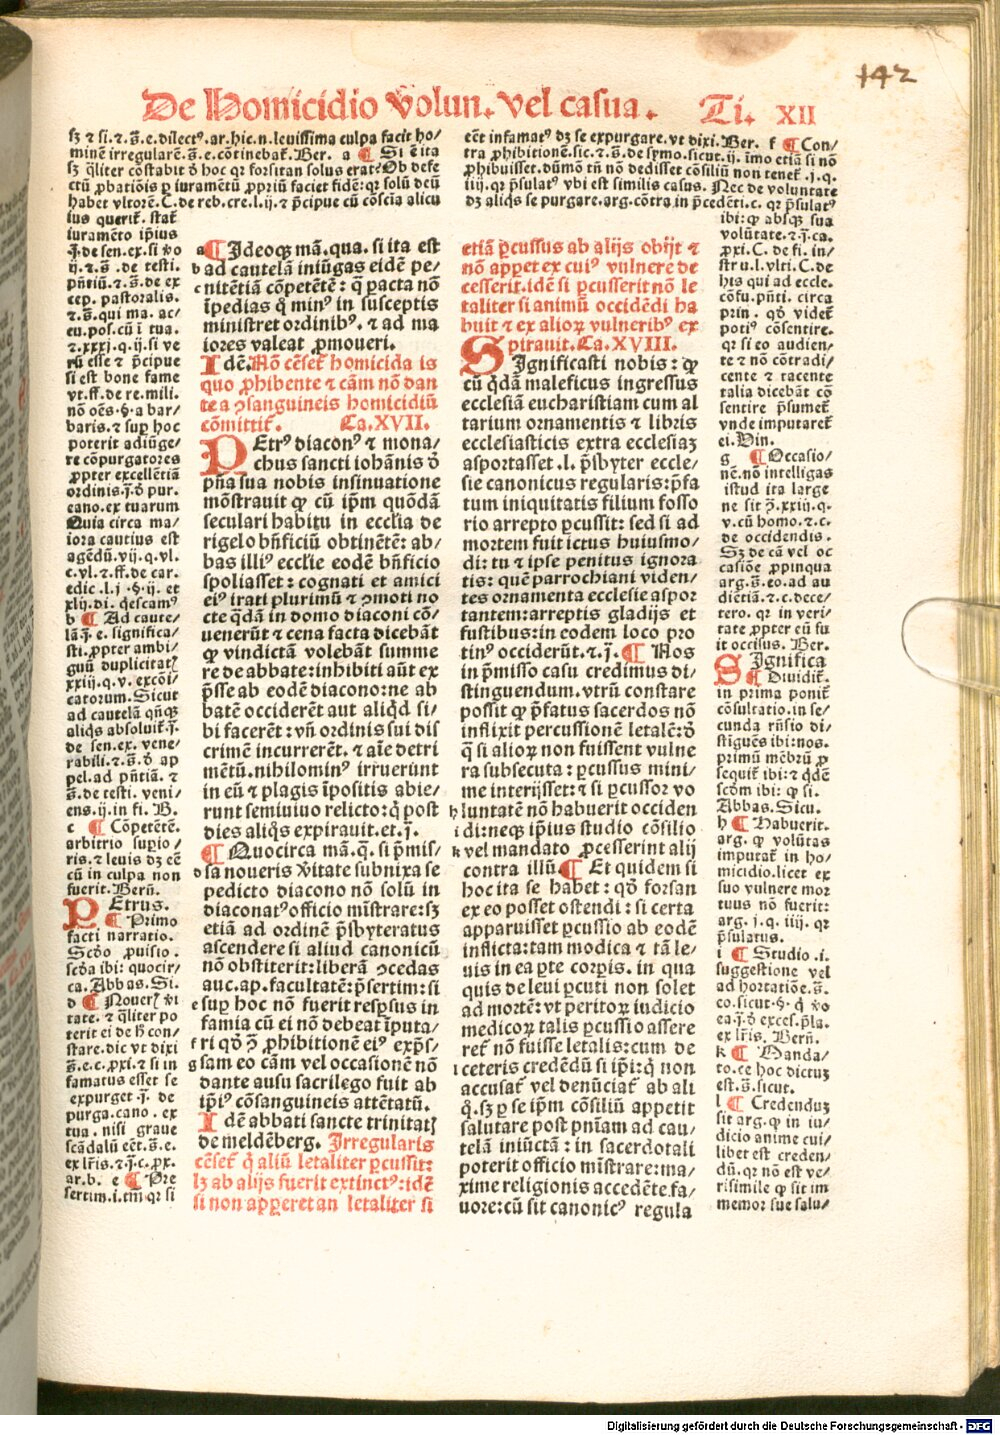 142
De Homicidio Volun. Vel casua. Ti. XII
sꝫ ⁊ si.⁊.s̄.e.dilectꝰ.ar.hic.n.leuissima culpa facit ho/
minē irregularē.s̄.e.cōtinebat᷑.Ber. a ¶ Si ē ita
sꝫ q̄liter cōstabit ď hoc qꝛ forsitan solus erat?Ob defe
ctū ꝓbatiōis ꝑ iuramētū ꝓpriū faciet fidē:qꝛ solū deū
habet vltorē.C.de reb.cre.l.ij.⁊ p̄cipue cū cōscia alicu
ius querit᷑. stat᷑
iuramēto ip̄ius
j̄.de sen.ex.si ꝟo
ij.⁊.s̄.de testi.
pn̄tiū.⁊.s̄.de ex
cep. pastoralis.
⁊.s̄.qui ma. ac/
eu.pos.cū i tua.
⁊.xxxj.q.ij.si ve
rū esse ⁊ p̄cipue
si est bone fame
vt.ff.de re.mili.
nō oēs.§.a bar/
baris.⁊ suꝑ hoc
poterit adiūge/
re cōpurgatores
ꝓpter excellētiā
ordinis.j̄.ď pur.
cano.ex tuarum
Quia circa ma/
iora cautius est
agēdū.vij.q.vl.
c.vl.⁊.ff.de car.
edic.l.j.§.ij. et
xlij.di. q̄escamꝰ
b ¶ Ad caute/
lā.j̄.e. significa/
sti.ꝓpter ambi/
guū duplicitatꝭ
xxiij.q.v. excōi/
catorum.Sicut
ad cautelā qn̄qꝫ
aliq̄s absoluit᷑.j̄.
de sen.ex. vene/
rabili.⁊.s̄.ď ap
pel.ad pn̄tiā. ⁊
s̄.de testi. veni/
ens.ij.in fi. B.
c ¶ Cōpetētē.
arbitrio supio/
ris.⁊ leuis dꝫ eē
cū in culpa non
fuerit.Bern̄.
PEtrus.
¶ Primo
facti narratio.
Scďo ꝓuisio.
scďa ibi: quocir/
ca.Abbas.Si.
d ¶ Nouerꝭ ꝟi
tate.⁊ q̄liter po
terit ei de h̄ con/
stare.dic vt dixi
s̄.e.c.ꝓxi.⁊ si in
famatus esset se
expurget .j̄. de
purga.cano. ex
tua. nisi graue
scādalū eēt.s̄.e.
ex lr̄is.⁊.j̄.c.ꝓx.
ar.b. e ¶ Pre
sertim.i.tm̄ qꝛ si
a ¶ Ideoqꝫ mā.qua.si ita est
b ad cautelā iniūgas eidē pe/
c nitētiā cōpetētē: q̄ pacta nō
īpedias q̊ minꝰ in susceptis
ministret ordinibꝰ. ⁊ ad ma
iores valeat ꝓmoueri.
Idē.Nō cēset᷑ homicida is
quo ꝓhibente ⁊ cām nō dan
te a ꝯsanguineis homicidiū
cōmittit᷑. Ca.XVII.
PEtrꝰ diaconꝰ ⁊ mona/
chus sancti iohānis ď
pn̄a sua nobis insinuatione
mōstrauit ꝙ cū ip̄m quōdā
seculari habitu in ecclīa de
rigelo bn̄ficiū obtinētē: ab/
bas illiꝰ ecclīe eodē bn̄ficio
spoliasset: cognati et amici
eiꝰ irati plurimū ⁊ ꝯmoti no
cte q̄dā in domo diaconi cō/
uenerūt ⁊ cena facta dicebāt
ꝙ vindictā volebāt summe
re de abbate:inhibiti aūt ex
p̄sse ab eodē diacono:ne ab
batē occiderēt aut aliq̄d si/
bi facerēt: vn̄ ordinis sui dis
crimē incurrerēt. ⁊ aīe detri
mētū.nihilominꝰ irruerunt
in eū ⁊ plagis īpositis abie/
runt semiuiuo relicto:q̄ post
dies aliq̄s expirauit.et.j̄.
¶ Quocirca mā.q̄.si p̄mis/
d sa noueris ꝟitate subnixa se
pedicto diacono nō solū in
diaconatꝰofficio mīstrare:sꝫ
etiā ad ordinē p̄sbyteratus
ascendere si aliud canonicū
nō obstiterit:liberā ꝯcedas
auc.ap.facultatē:p̄sertim:si
e suꝑ hoc nō fuerit respsus in
famia cū ei nō debeat īputa/
f ri qď ꝯ̄ ꝓhibitionē eiꝰ exp̄s/
g sam eo cām vel occasionē nō
dante ausu sacrilego fuit ab
ip̄iꝰ cōsanguineis attētatū.
Idē abbati sancte trinitatꝭ
de meldēberg. Irregularis
cēset᷑ q̄ aliū letaliter ꝑcussit:
lꝫ ab alijs fuerit extinctꝰ:idē
si non apperet an letaliter si
eēt infamatꝰ dꝫ se expurgare.vt dixi.Ber. f ¶ Con/
tra ꝓhibitionē.sic.⁊.s̄.de symo.sicut.ij. īmo etiā si nō
ꝓhibuisset.dūmō tn̄ nō dedisset cōsiliū non tenet᷑.j.q.
iij.qꝛ p̄sulatꝰ vbi est similis casus. Nec de voluntate
dꝫ aliq̄s se purgare.arg.cōtra in p̄cedēti.c. qꝛ p̄sulatꝰ
etiā ꝑcussus ab alijs obijt ⁊
nō appet ex cuiꝰ vulnere de
cesserit.idē si ꝑcusserit nō le
taliter si animū occidēdi ha
buit ⁊ ex alioꝝ vulneribꝰ ex
pirauit.Ca.XVIII.
SIgnificasti nobis: ꝙ
cū q̄dā maleficus ingressus
ecclesiā eucharistiam cum al
tarium ornamentis ⁊ libris
ecclesiasticis extra ecclesiaꝫ
asportasset.l. p̄sbyter eccle/
sie canonicus regularis:p̄fa
tum iniquitatis filium fosso
rio arrepto ꝑcussit: sed si ad
mortem fuit ictus huiusmo/
di: tu ⁊ ipse penitus ignora
tis: quē parrochiani viden/
tes ornamenta ecclesie aspor
tantem:arreptis gladijs et
fustibus:in eodem loco pro
tinꝰ occiderūt.⁊.j̄.¶ Nos
in p̄misso casu credimus di/
stinguendum.vtrū constare
possit ꝙ p̄fatus sacerdos nō
inflixit percussionē letalē:ď
q̄ si alioꝝ non fuissent vulne
ra subsecuta: ꝑcussus mini/
me interijsset: ⁊ si ꝑcussor vo
h luntatē nō habuerit occiden
i di:neqꝫ ip̄ius studio cōsilio
k vel mandato ꝓcesserint alij
contra illū.¶ Et quidem si
hoc ita se habet: qď forsan
ex eo posset ostendi: si certa
apparuisset ꝑcussio ab eodē
inflicta:tam modica ⁊ tā le/
uis in ea ꝑte corꝑis. in qua
quis de leui ꝑcuti non solet
ad mortē: vt peritoꝝ iudicio
medicoꝝ talis ꝑcussio assere
ret᷑ nō fuisse letalis:cum de
l ceteris credēdū si ip̄i:q̄ non
accusat᷑ vel denūciat᷑ ab ali
q̊.sꝫ ꝑ se ip̄m cōsiliū appetit
salutare post pn̄iam ad cau/
telā iniūctā: in sacerdotali
poterit officio mīstrare:ma/
xime religionis accedēte.fa/
uore:cū sit canonicꝰ regula
ibi:ꝙ absqꝫ sua
volūtate.⁊.j̄.ca.
ꝓxi. C. de fi. in/
stru.l.vlti.C.de
his qui ad eccle.
cōfu.pn̄ti. circa
prin. qď videt᷑
potiꝰ cōsentire.
qꝛ si eo audien/
te ⁊ nō cōtradi/
cente ⁊ tacente
talia dicebāt cō
sentire p̄sumet᷑
vnde imputaret᷑
ei.Vin.
g ¶ Occasio/
nē.nō intelligas
istud ita large
ne sit ꝯ̄.xxiij.q.
v.cū homo.⁊.c.
de occidendis.
Sꝫ de cā vel oc
casiōe ꝓpinqua
arg.s̄.eo.ad au
diētiā.⁊.c.dece/
tero. qꝛ in veri/
tate ꝓpter eū fu
it occisus. Ber.
SIgnifica
¶ Diuidit᷑.
in prima ponit᷑
cōsultatio.in se/
cunda rn̄sio di/
stiguēs ibi:nos.
primū mēbrū ꝓ
sequit᷑ ibi:⁊ q̄dē
scďm ibi: ꝙ si.
Abbas.Sicu.
h ¶ Habuerit.
arg. ꝙ volūtas
imputat᷑ in ho/
micidio.licet ex
suo vulnere mor
tuus nō fuerit:
arg. j.q. iij. qꝛ
p̄sulatus.
i ¶ Studio .i.
suggestione vel
ad hortatiōe.s̄.
co.sicut.§. q̄ ꝟo
ea.j̄.ď exces.p̄la.
ex lr̄is. Bern̄.
k ¶ Manda/
to.ce hoc dictuꝫ
est.s̄.sicut.
l ¶ Credenduꝫ
sit arg.ꝙ in iu/
dicio anime cui/
libet est creden/
dū.qꝛ nō est ve/
risimile ꝙ sit im
memor sue salu/
Digitalisierung gefördert durch die Deutsche Forschungsgemeinschaft - DFG